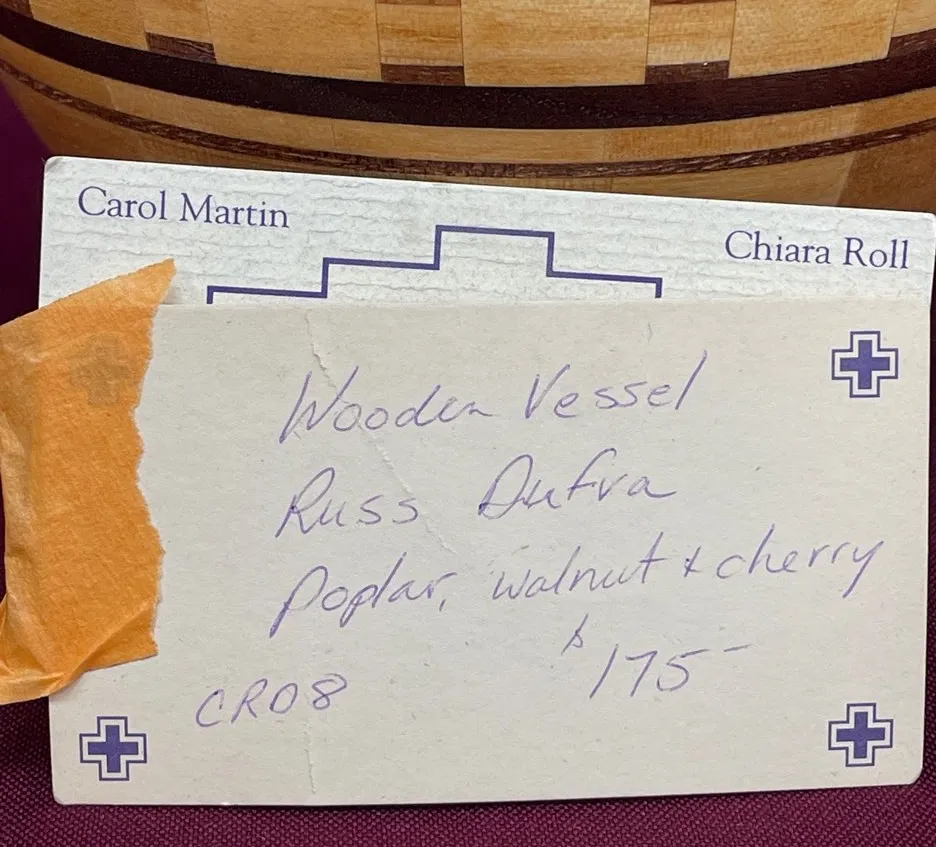 Carol Martin
Chiara Roll
Wooden Vessel
Russ Dufva
Poplar, walnut & cherry
$175-
CR08